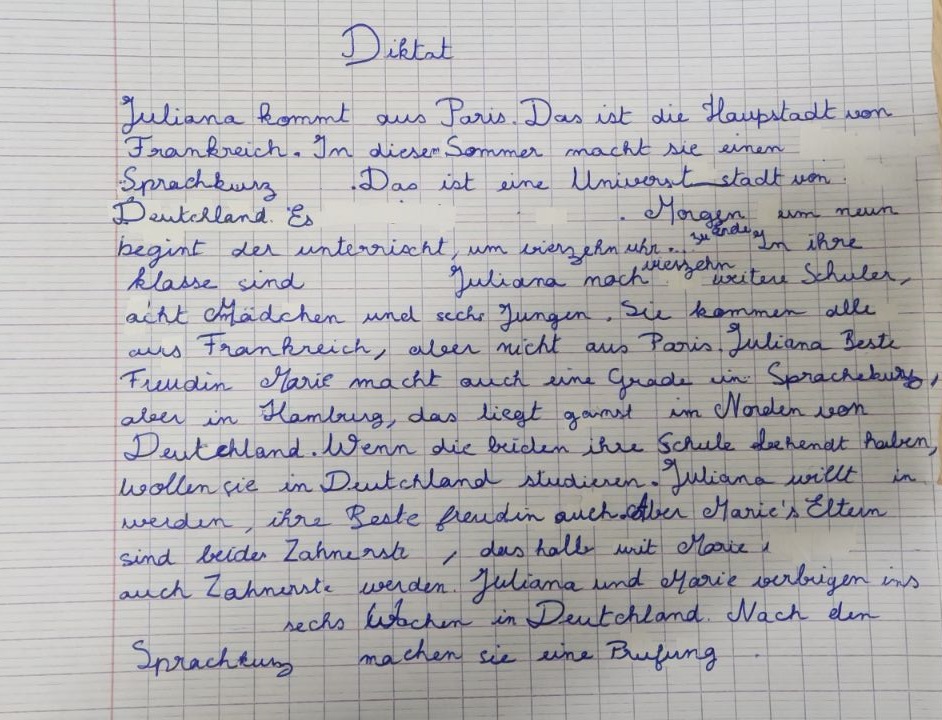 Diktat
Juliana kommt aus Paris. Das ist die Haupstadt von
Frankreich. In diesem Sommer macht sie einen
Sprachkurz . Das ist eine Universt stadt von
Deutchland. Es . Morgen um neun
begint der unterrischt, um vierzehn uhr. zu ände In ihre
klasse sind Juliana noch vierzehn weitere Schuler,
acht Mädchen und sechs Jungen. Sie kommen alle
aus Frankreich, aber nicht aus Paris. Juliana Beste
Freudin Marie macht auch eine Grade in Sprachekurs,
aber in Hamburg, das liegt ganst im Norden von
Deutchland. Wenn die beiden ihre Schule behendt haben,
wollen sie in Deutchland studieren. Juliana willt in
werden, ihre Beste freudin auch. Aber Marie's Eltern
sind beide Zahnerste, das halb mit Marie
auch Zahnerste werden. Juliana und Marie verbrigen ins
sechs Wochen in Deutchland. Nach den
Sprachkurz machen sie eine Prufung .